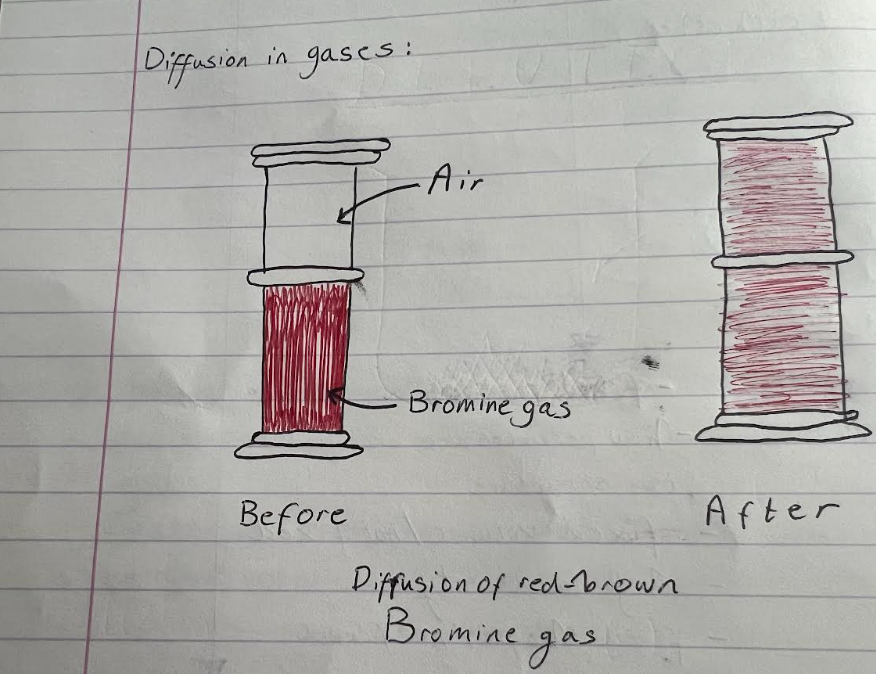 Diffusion in gases:
Air
Bromine gas
Before
After
Diffusion of red-brown
Bromine gas